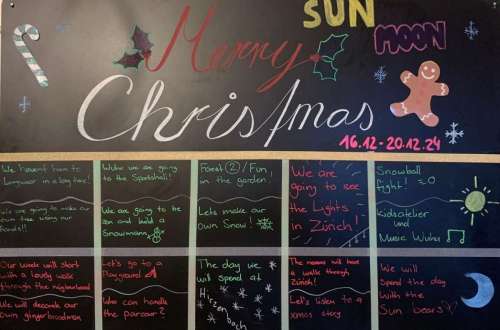 SUN
MOON
Merry
Christmas
16.12-20.12.24
We havent been to
in a long time!
We are going to make our
own tree using our
hands!!
We are going
to the Sportshall!
We are going to be
and build a
Snowmann
Forest ②/Fun
in the garden!
Lets make our
own Snow!
We are
going to see
the Lights
in Zürich!
Snowball
fight!
Kidsatelier
und
Music Wuhu
Our week will start
with a lovely walk
through the neighborhood
We will decorate our
own gingerbreadmen
Let's go to a
Playground
Who can handle
the parcour?
The day we
will spend at
Hirzenbach
The moons will have
a walk through
Zürich!
Let's listen to a
xmas story
We will
Spend the day
with the
Sun bears